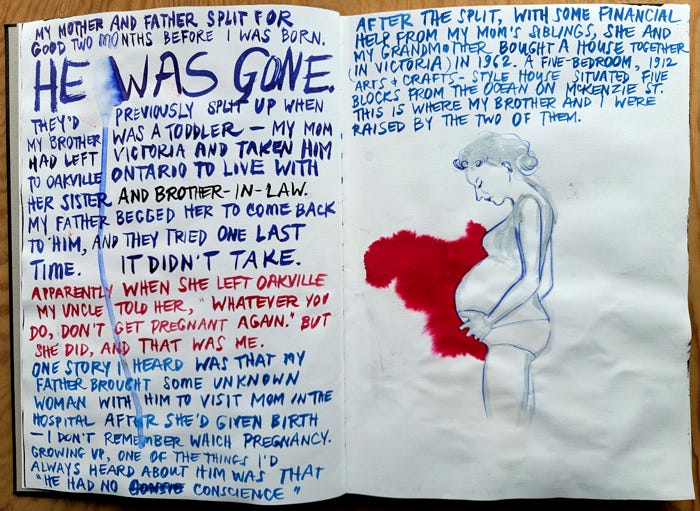 MY MOTHER AND FATHER SPLIT FOR
GOOD TWO MONTHS BEFORE I WAS BORN.
HE WAS GONE.
THEY'D PREVIOUSLY SPLIT UP WHEN
MY BROTHER WAS A TODDLER — MY MOM
HAD LEFT VICTORIA AND TAKEN HIM
TO OAKVILLE ONTARIO TO LIVE WITH
HER SISTER AND BROTHER-IN-LAW.
MY FATHER BEGGED HER TO COME BACK
TO HIM, AND THEY TRIED ONE LAST
TIME. IT DIDN'T TAKE.
APPARENTLY WHEN SHE LEFT OAKVILLE
MY UNCLE TOLD HER, "WHATEVER YOU
DO, DON'T GET PREGNANT AGAIN." BUT
SHE DID, AND THAT WAS ME.
ONE STORY I HEARD WAS THAT MY
FATHER BROUGHT SOME UNKNOWN
WOMAN WITH HIM TO VISIT MOM IN THE
HOSPITAL AFTER SHE'D GIVEN BIRTH
— I DON'T REMEMBER WHICH PREGNANCY.
GROWING UP, ONE OF THE THINGS I'D
ALWAYS HEARD ABOUT HIM WAS THAT
"HE HAD NO CONSCIENCE"
AFTER THE SPLIT, WITH SOME FINANCIAL
HELP FROM MY MOM'S SIBLINGS, SHE AND
MY GRANDMOTHER BOUGHT A HOUSE TOGETHER
(IN VICTORIA) IN 1962. A FIVE-BEDROOM, 1912
ARTS + CRAFTS-STYLE HOUSE SITUATED FIVE
BLOCKS FROM THE OCEAN ON MCKENZIE ST.
THIS IS WHERE MY BROTHER AND I WERE
RAISED BY THE TWO OF THEM.